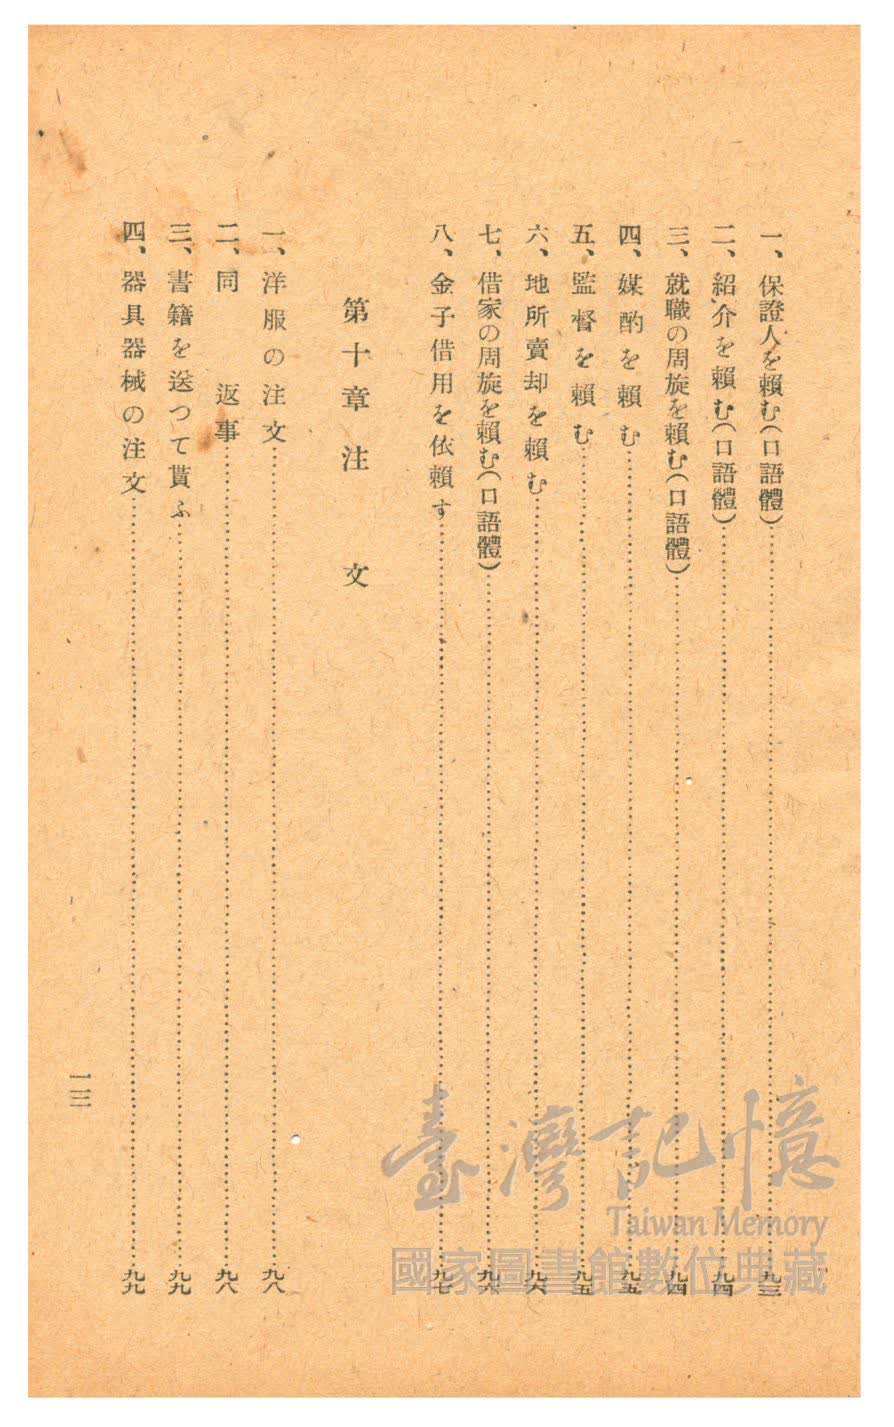 一、保證人を賴む(口語體)……九三
二、紹介を賴む(口語體)……九四
三、就職の周旋を賴む(口語體)……九四
四、媒酌を賴む……九五
五、監督を賴む……九五
六、地所賣却を賴む……九六
七、借家の周旋を賴む(口語體)……九六
八、金子借用を依賴す……九七
第十章 注 文
一、洋服の注文……九八
二、同 返事……九八
三、書籍を送つて貰ふ……九九
四、器具器械の注文……九九
一三
臺灣記憶
Taiwan Memory
國家圖書館數位典藏